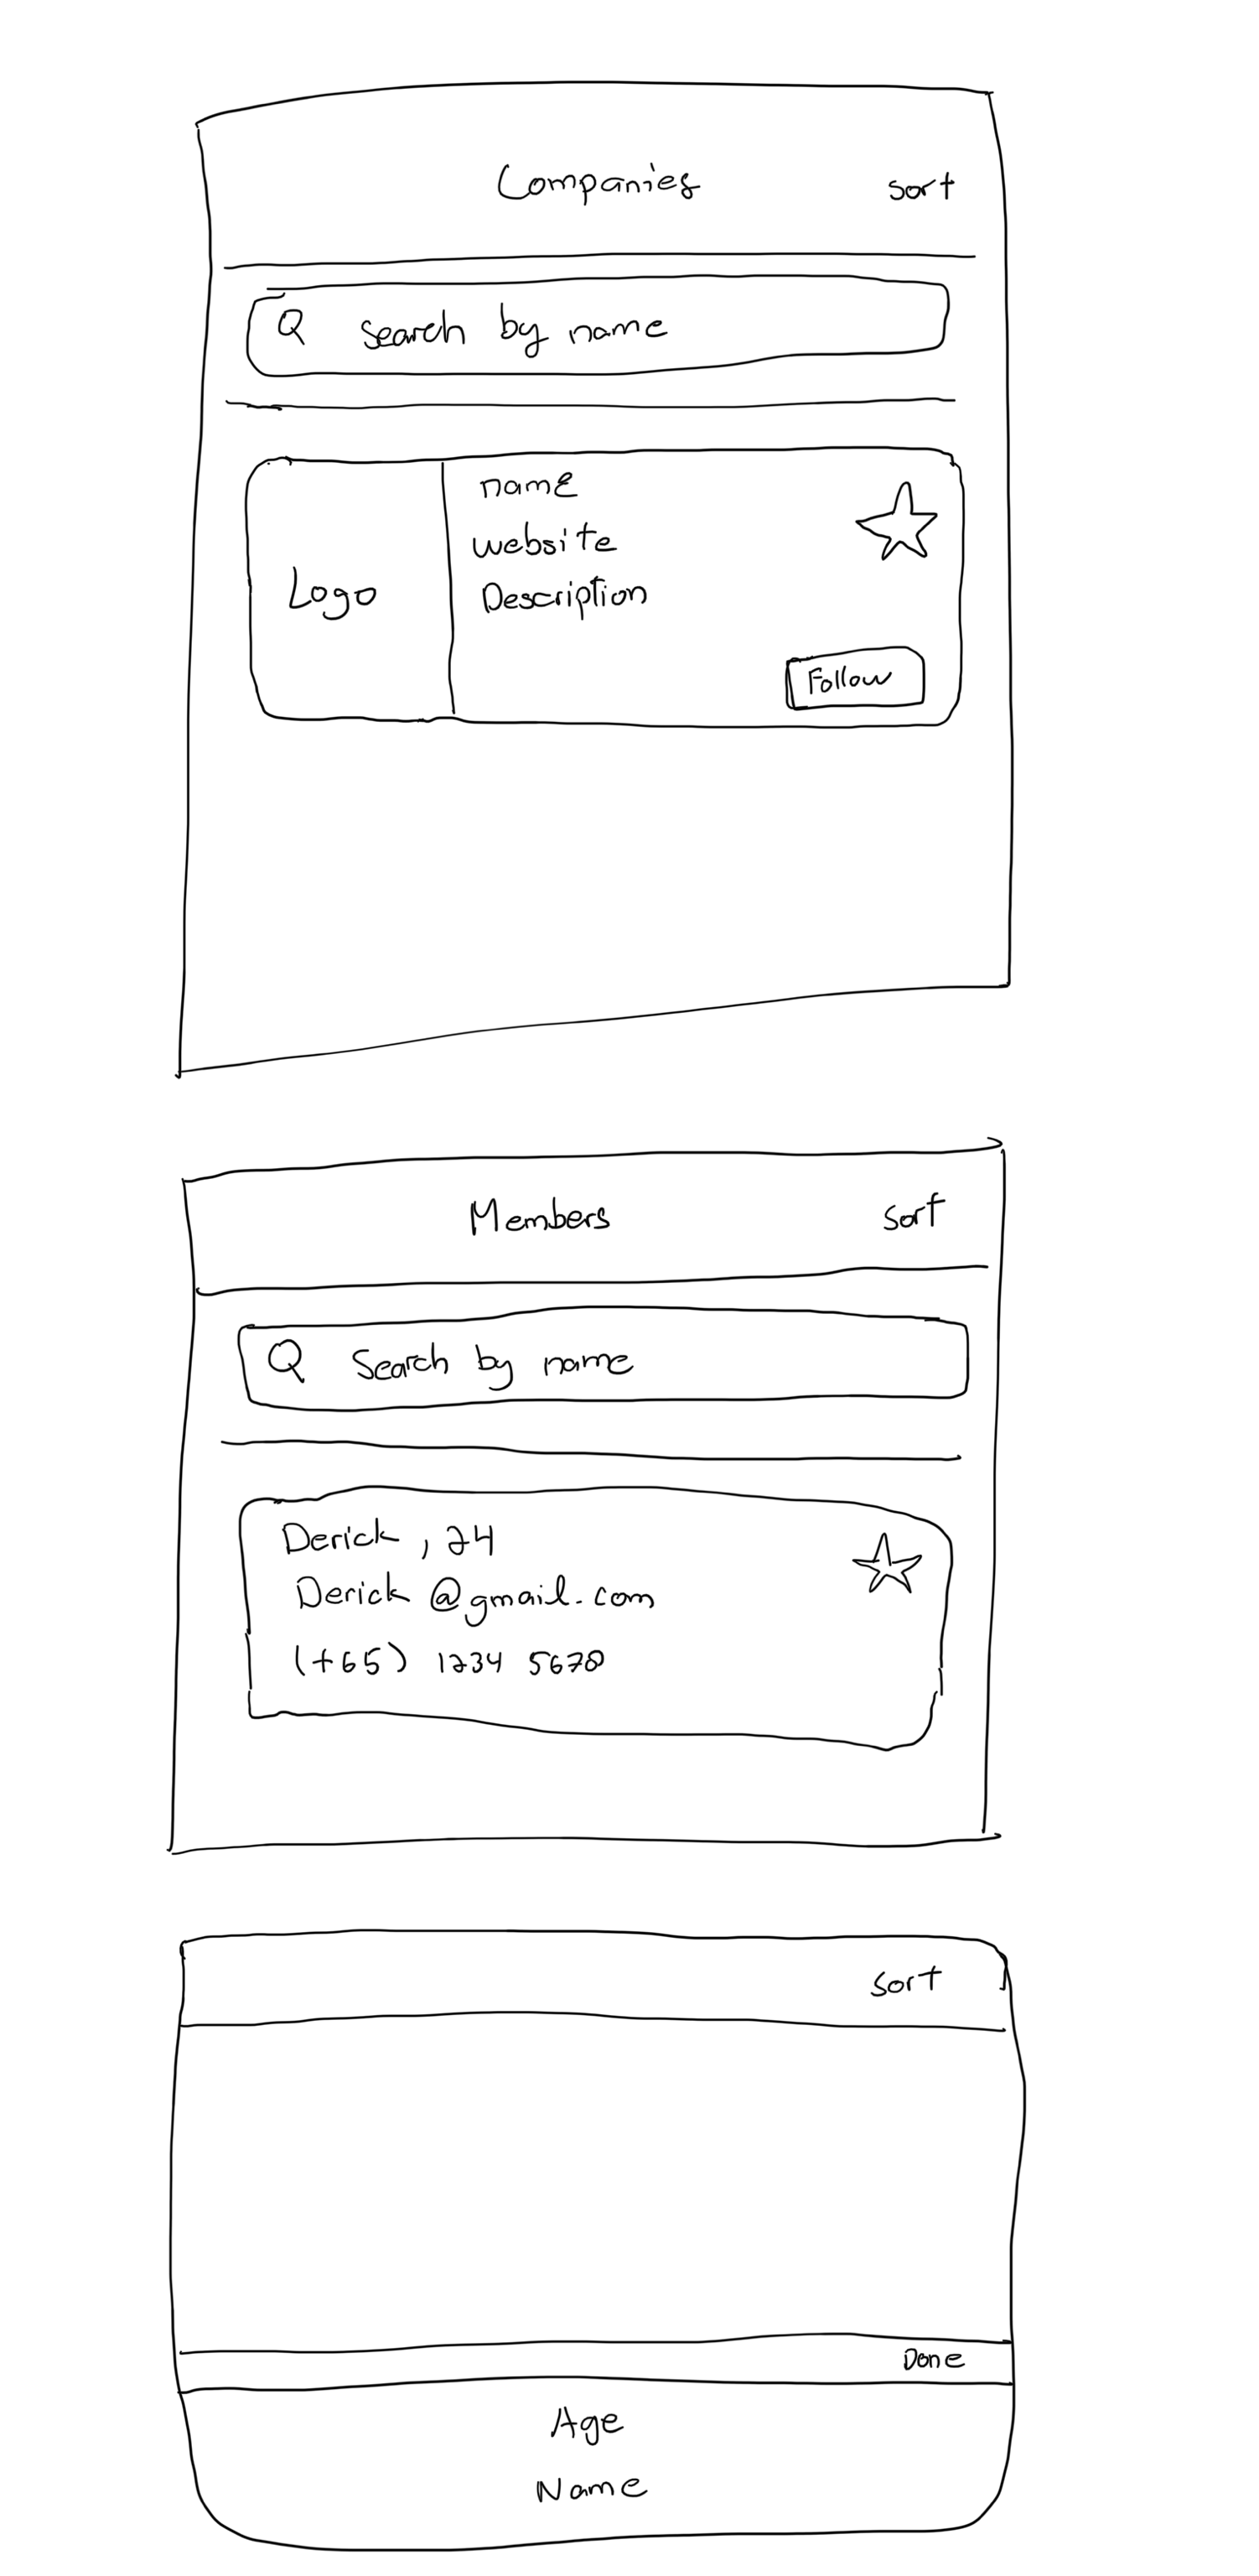 Companies sort
search by name
name
website
Description
Logo
Follow
Members sort
Search by name
Derick, 24
Derick@gmail.com
(+65) 1234 5678
sort
Done
Age
Name